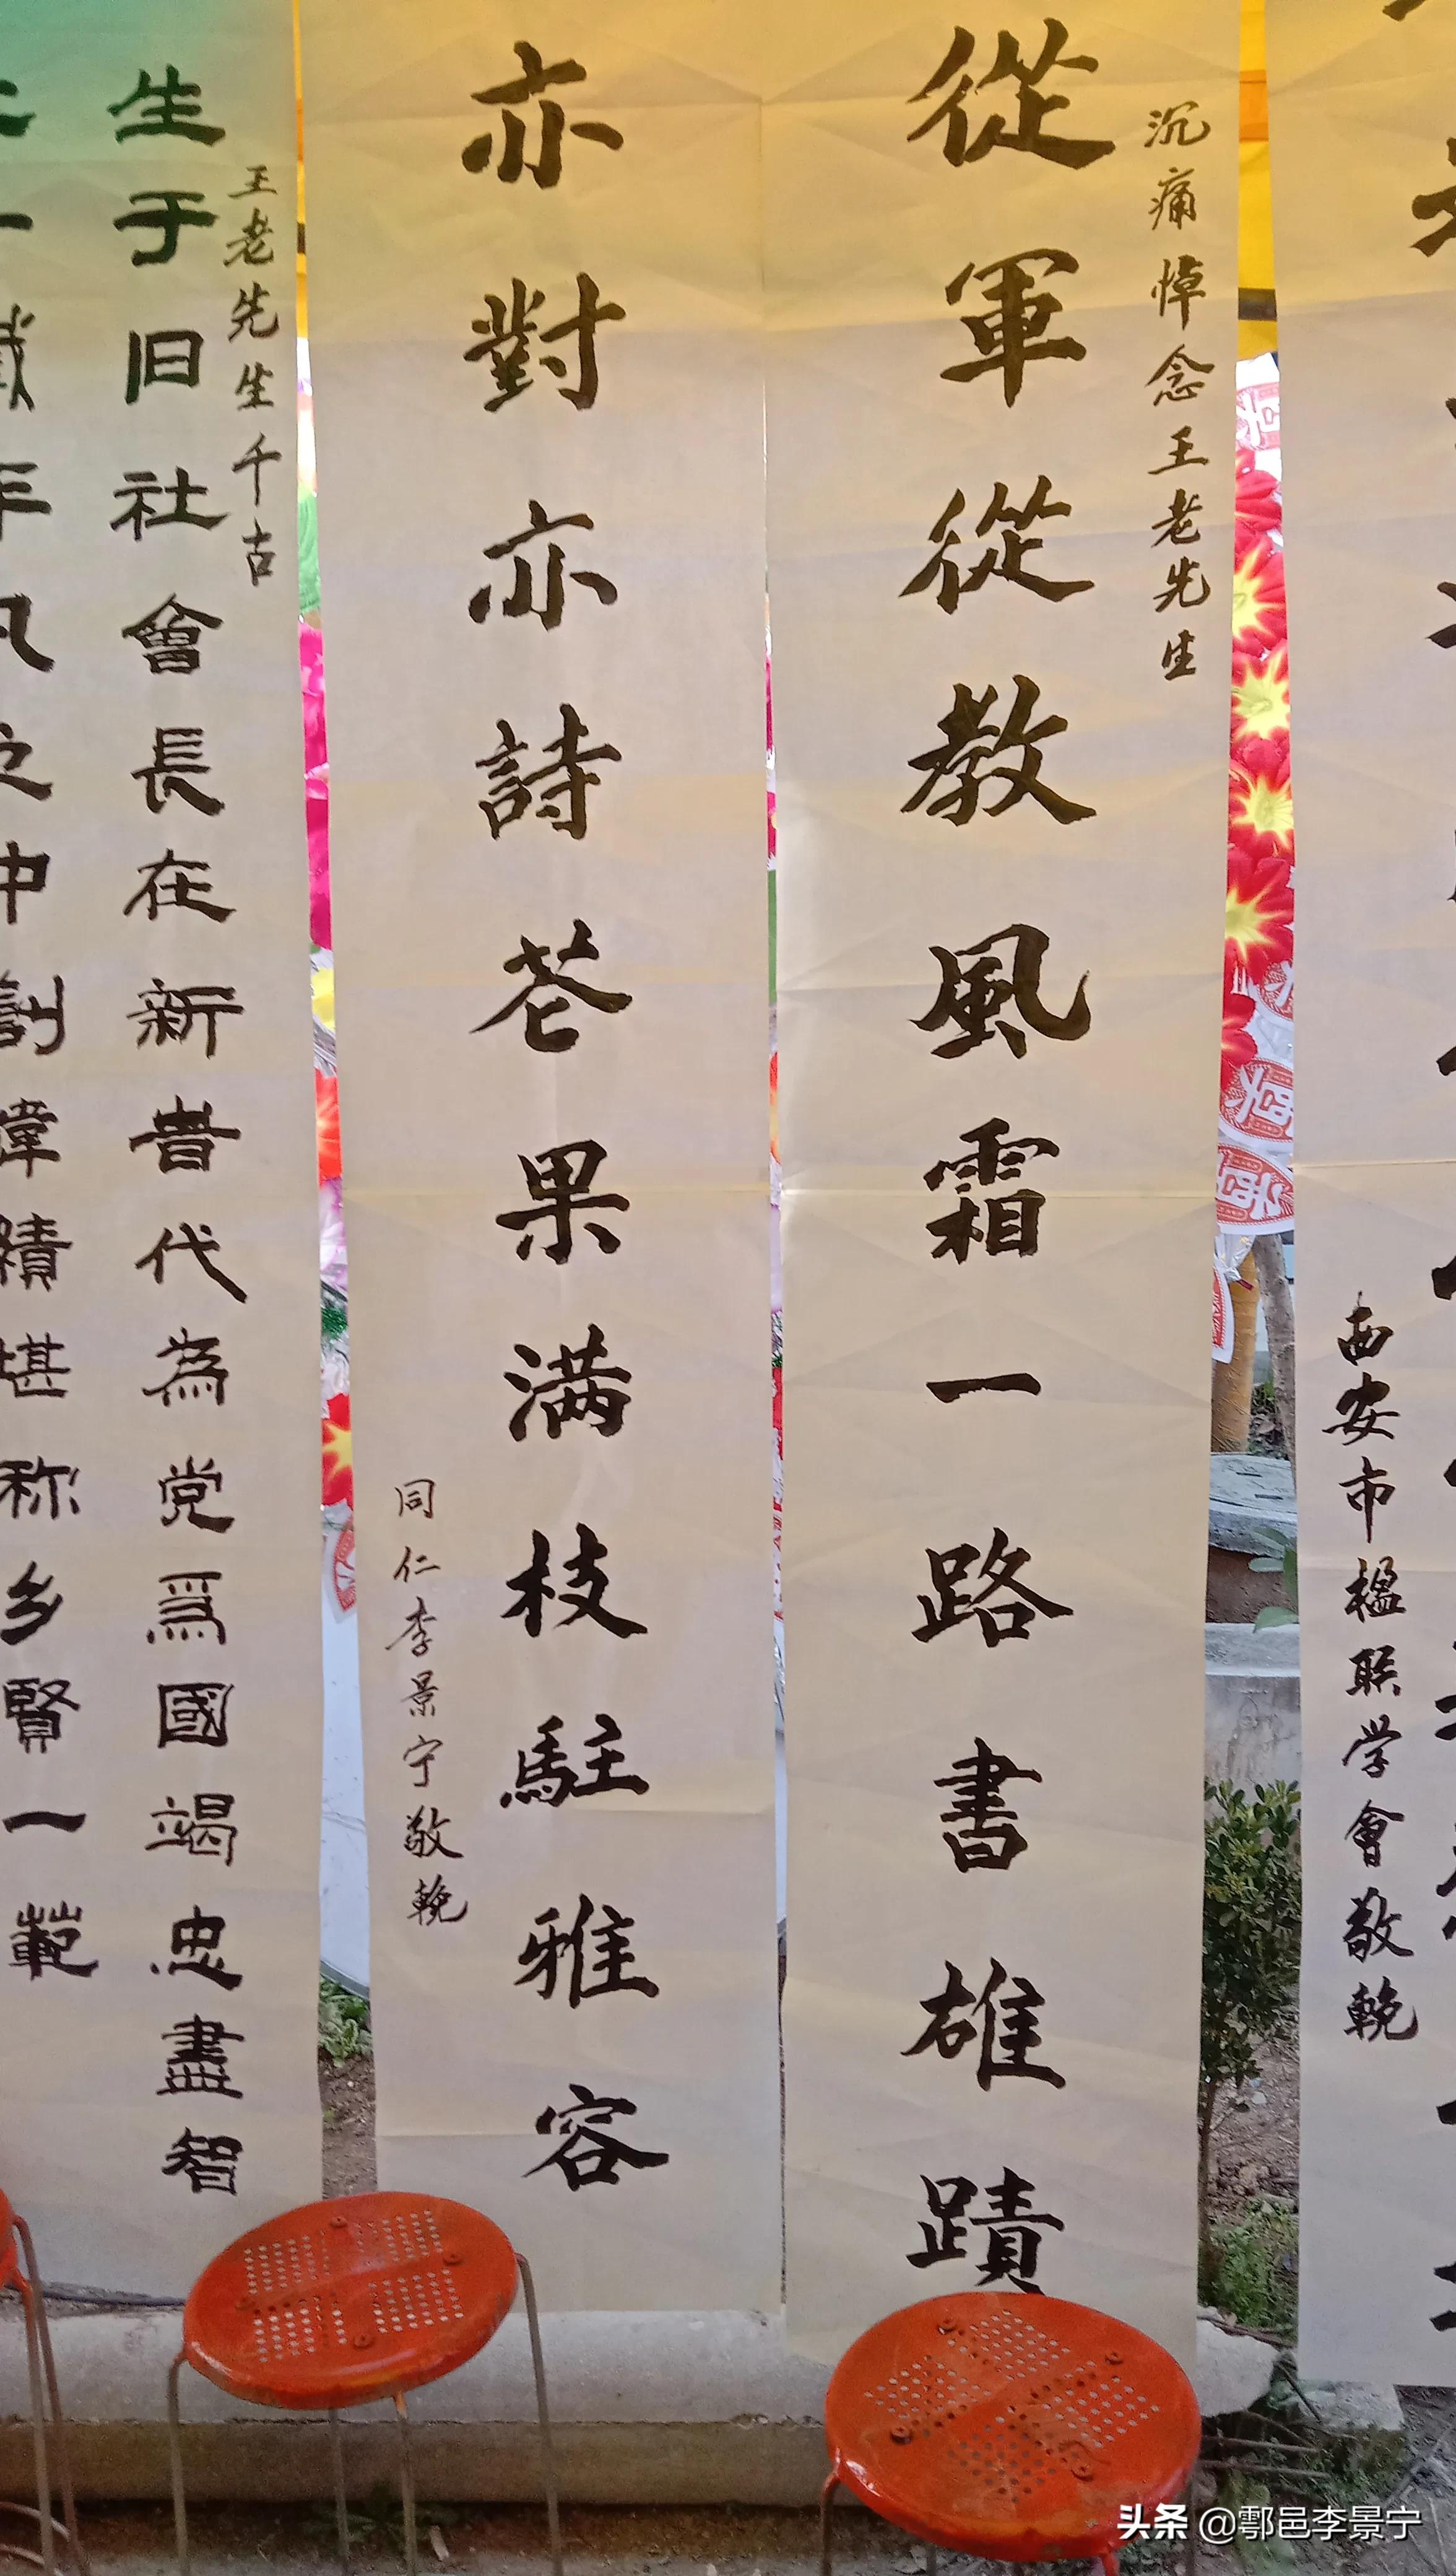 西安市楹联学會敬輓
沉痛悼念王老先生
從軍從教風霜一路書雄蹟
亦對亦詩花果满枝駐雅容
同仁李景宁敬輓
王老先生千古
生于旧社會長在新昔代為党爲國竭忠盡智
年风之中創偉績堪称乡賢一範
头条 @鄠邑李景宁